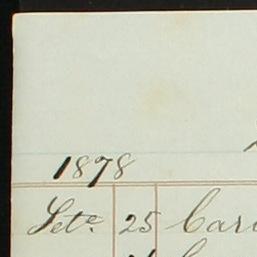 1878
Sete. 25 Car